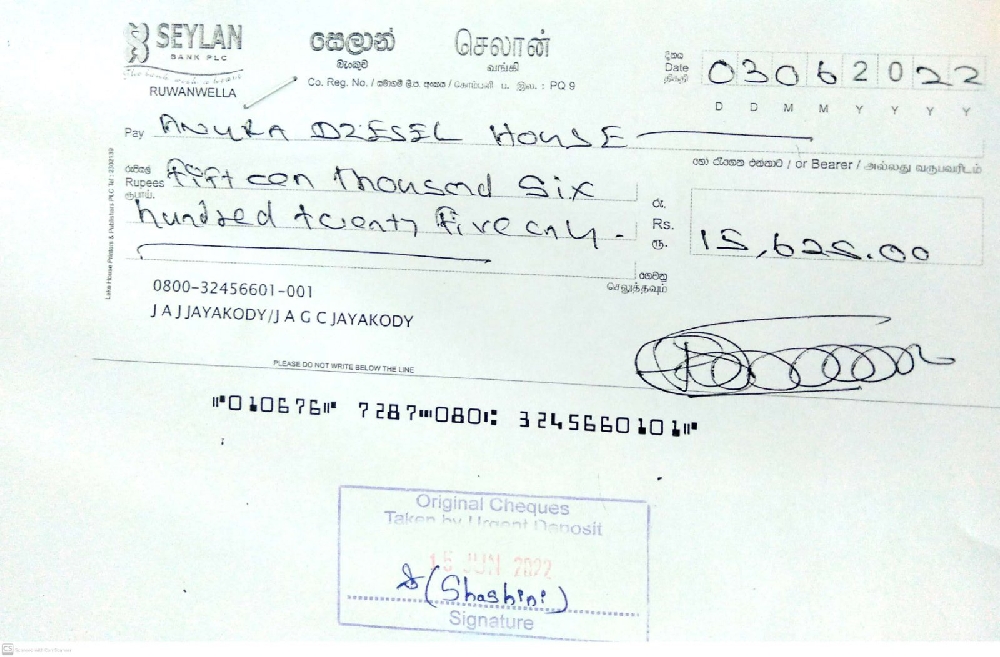 SEYLAN
BANK PLC
RUWANWELLA
සෙලාන්
බැංකුව
செலான்
வங்கி
Co. Reg. No. / සමාගම් ලි.ප. අංකය / கொம்பனி ப. இல. : PQ 9
දිනය
Date
திகதி
03062022
D D M M Y Y Y Y
Pay ANURA DIESEL HOUSE
හෝ රැගෙන එන්නාට / or Bearer / அல்லது வருபவரிடம்
රුපියල්
Rupees
ரூபாய்
fifteen thousand six
hundred twenty five only -
රු.
Rs.
ரூ.
15,625.00
ගෙවනු
செலுத்தவும்
Lake House Printers & Publishers PLC
0800-32456601-001
J A J JAYAKODY/J A G C JAYAKODY
PLEASE DO NOT WRITE BELOW THE LINE
⑈010676⑈ 7287⑉080⑆ 3245660101⑈
Original Cheques
Taken by Urgent Deposit
15 JUN 2022
(Shashini)
Signature
CS